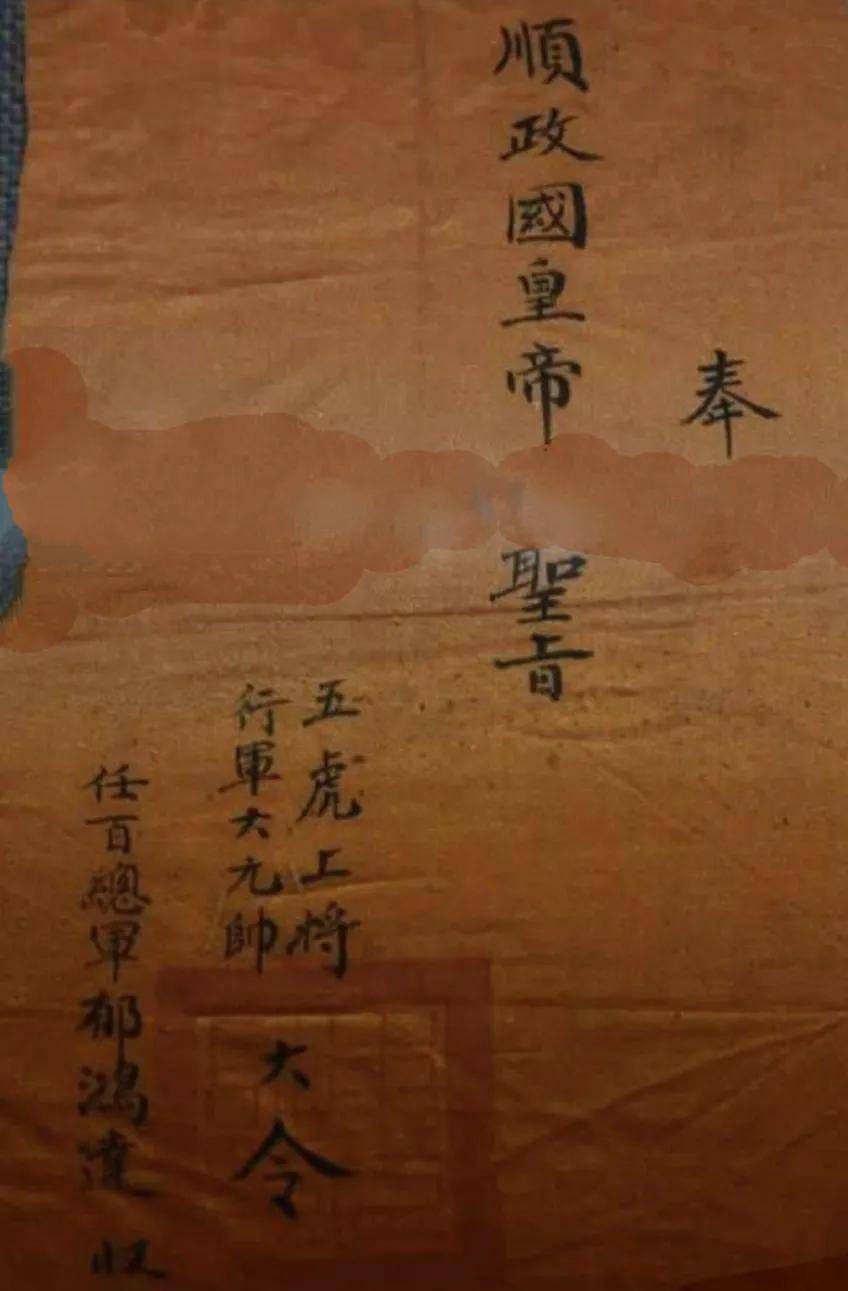 奉
順政國皇帝
聖旨
五虎上将
行軍大元帥
大令
任百總軍郁鴻達 收